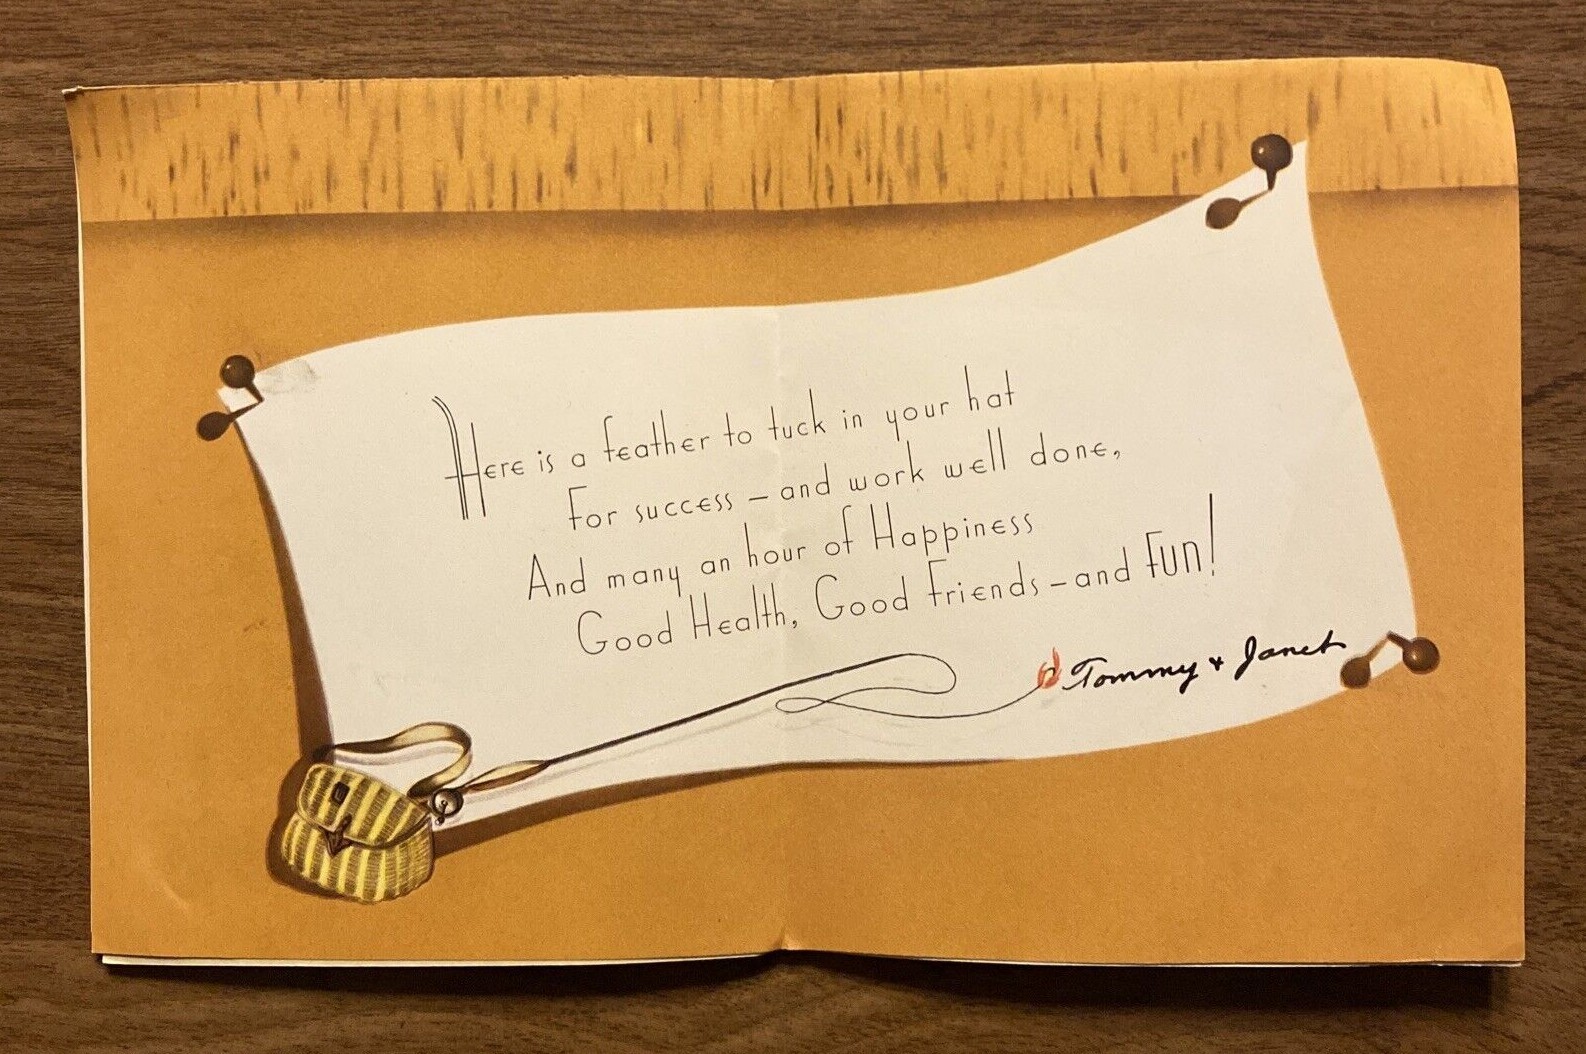 Here is a feather to tuck in your hat
For success – and work well done,
And many an hour of Happiness
Good Health, Good Friends – and Fun!
Tommy + Janet